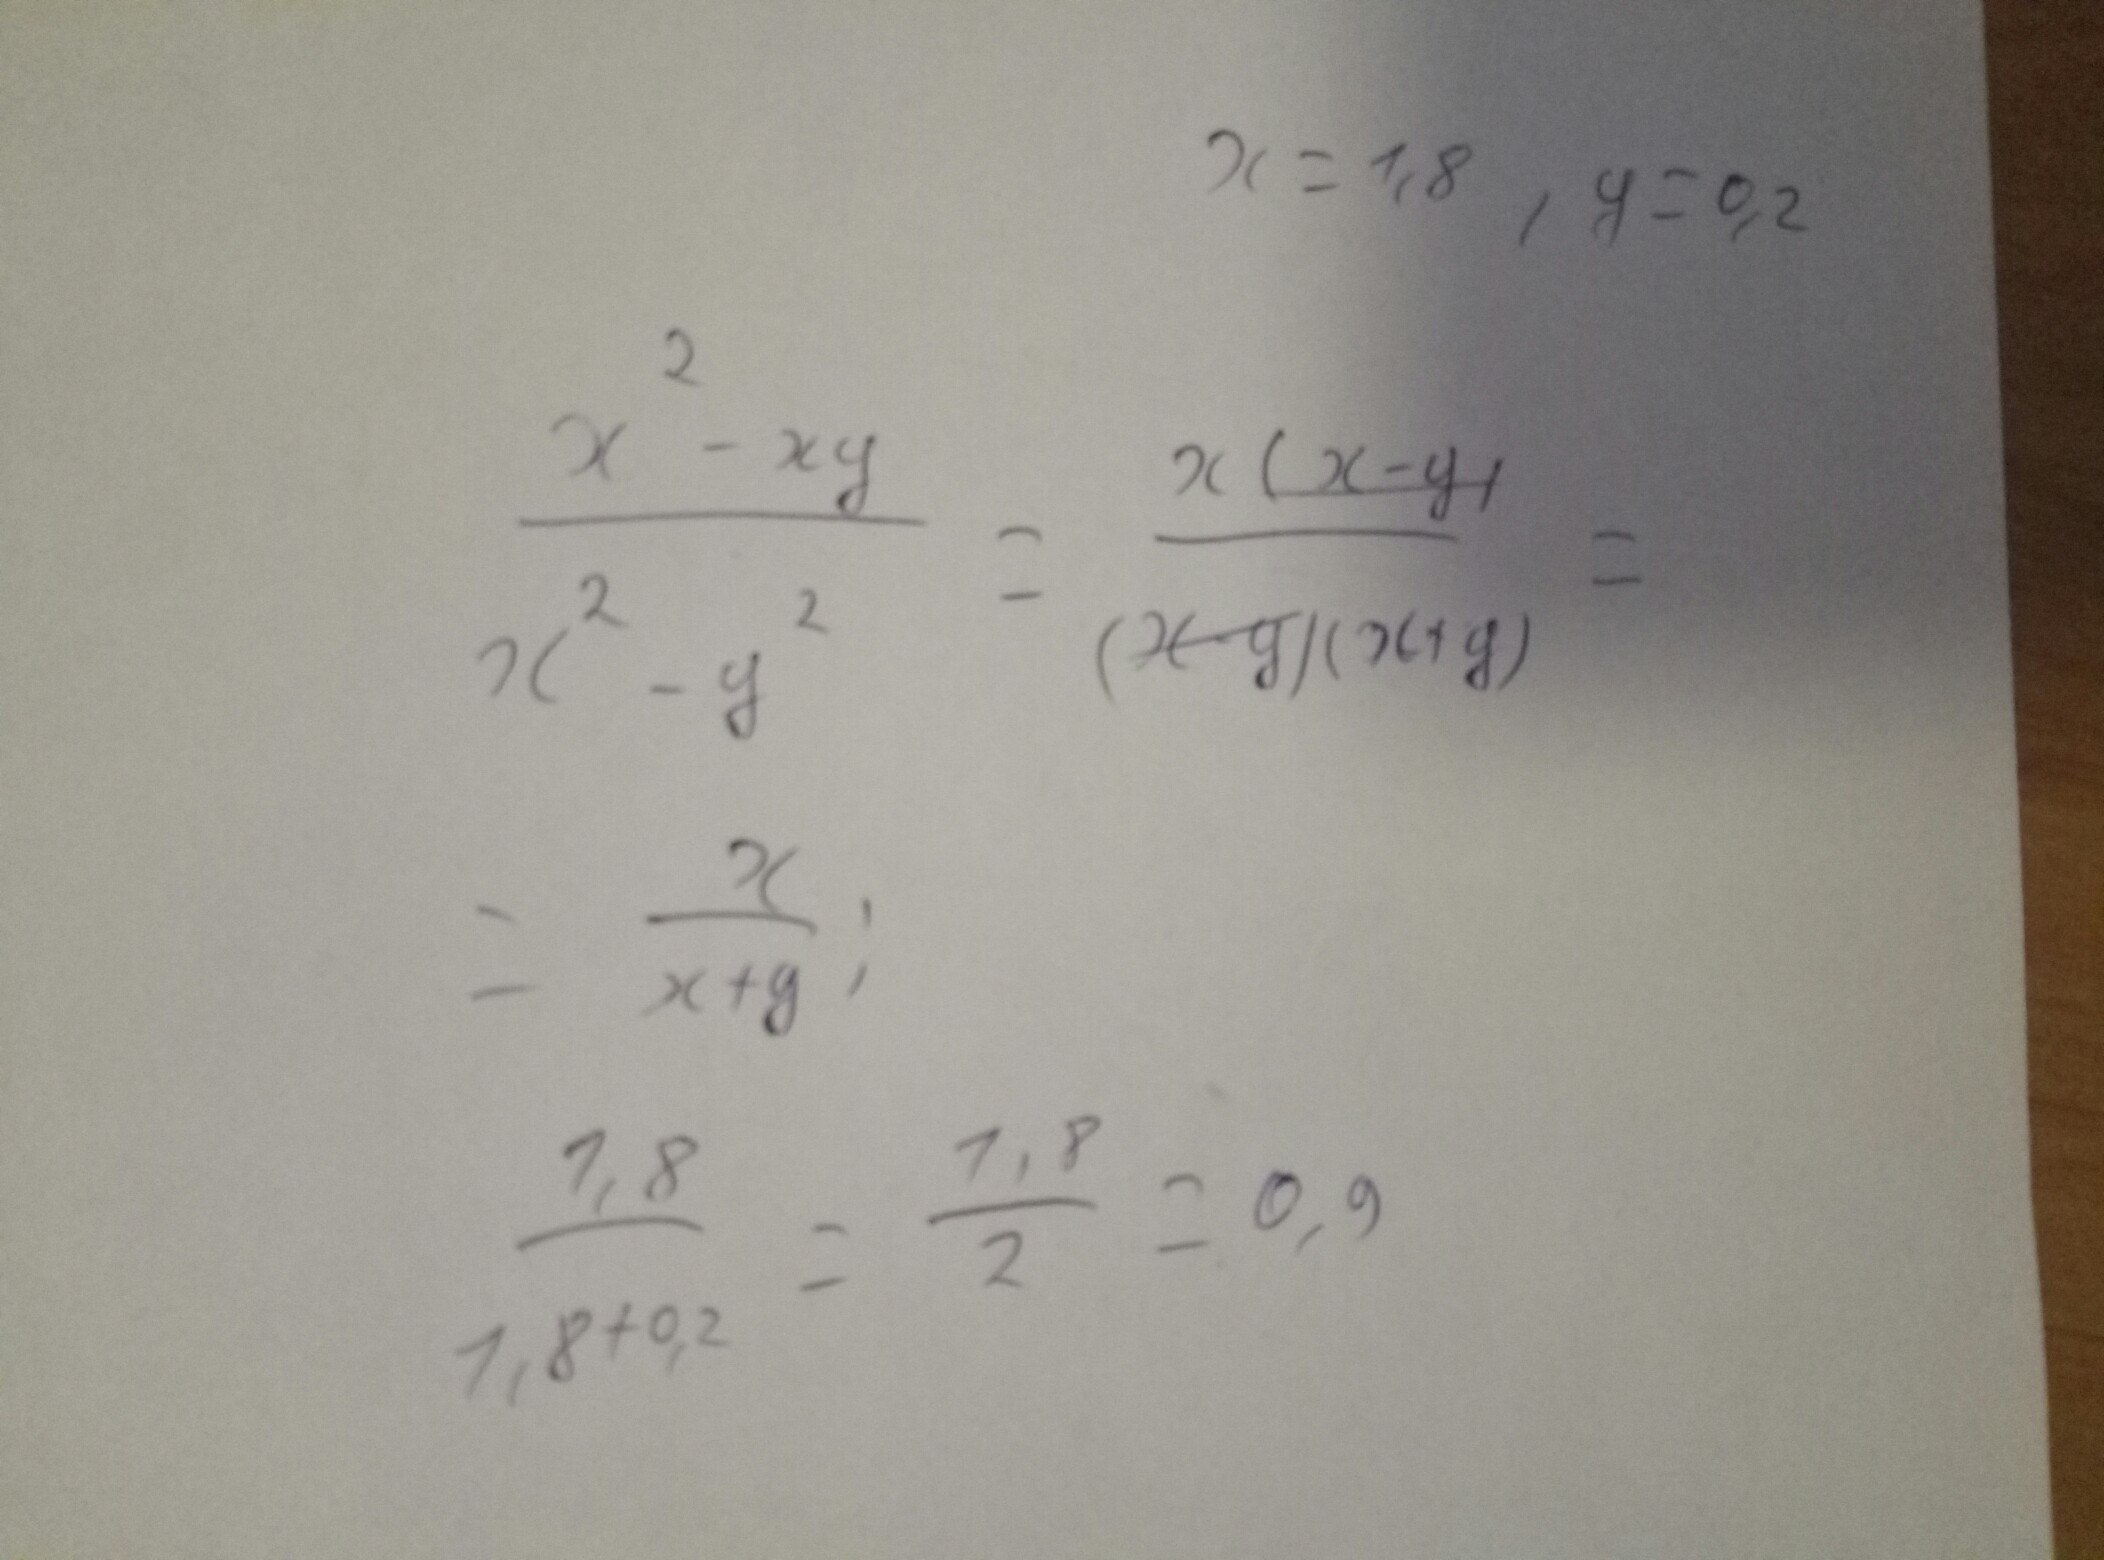 x = 1,8 , y = 0,2
x² - xy / x² - y² = x(x-y) / (x-y)(x+y) =
= x / x+y ;
1,8 / 1,8+0,2 = 1,8 / 2 = 0,9